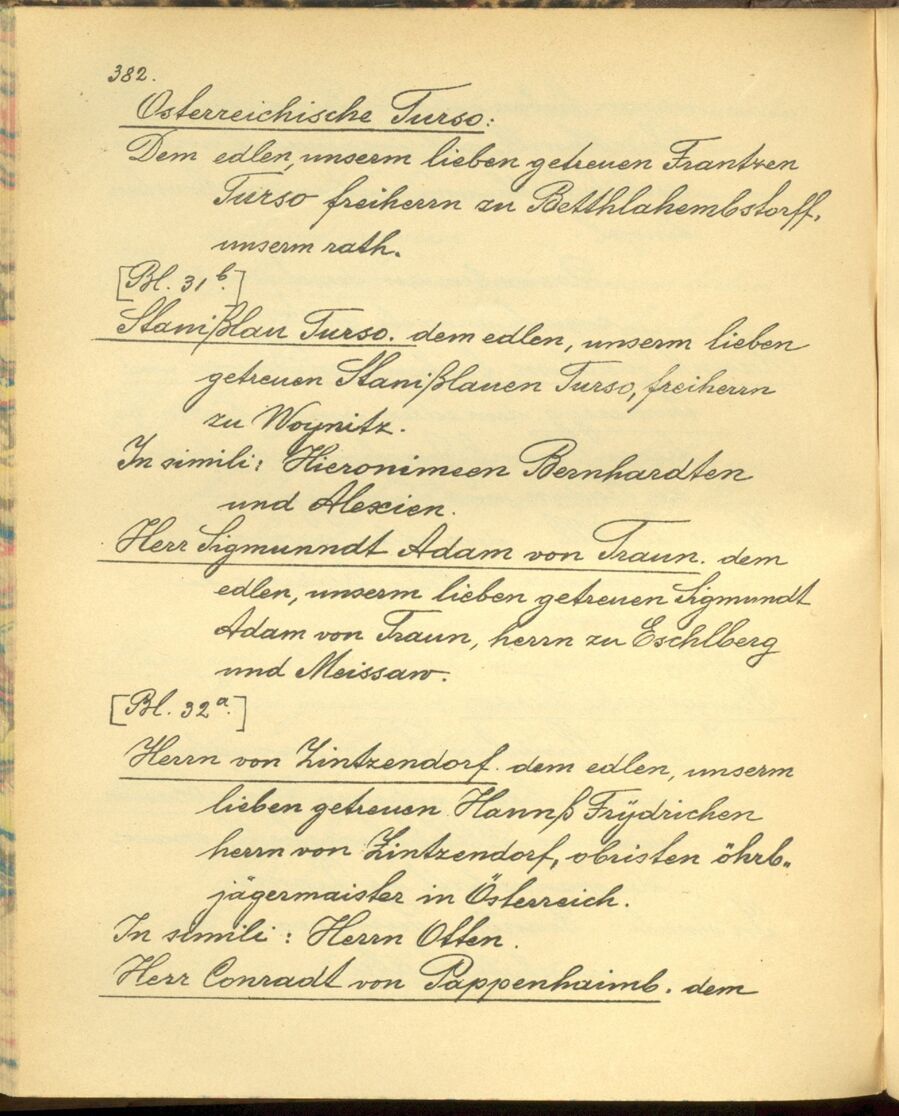 382.
Österreichische Turso:
Dem edlen, unserm lieben getreuen Frantzen
Turso freiherrn zu Betthlahembstorff,
unserm rath.
[Bl. 31b.]
Stanißlau Turso. dem edlen, unserm lieben
getreuen Stanißlauen Turso, freiherrn
zu Woynitz.
In simili: Hieronimeen Bernhardten
und Alexien.
Herr Sigmunndt Adam von Traun. dem
edlen, unserm lieben getreuen Sigmundt
Adam von Traun, herrn zu Eschlberg
und Meissaw.
[Bl. 32a.]
Herrn von Zintzendorf. dem edlen, unserm
lieben getreuen Hannß Frÿdrichen
herrn von Zintzendorf, obristen öhrb-
jägermaister in Österreich.
In simili: Herrn Otten.
Herr Conradt von Pappenhaimb. dem